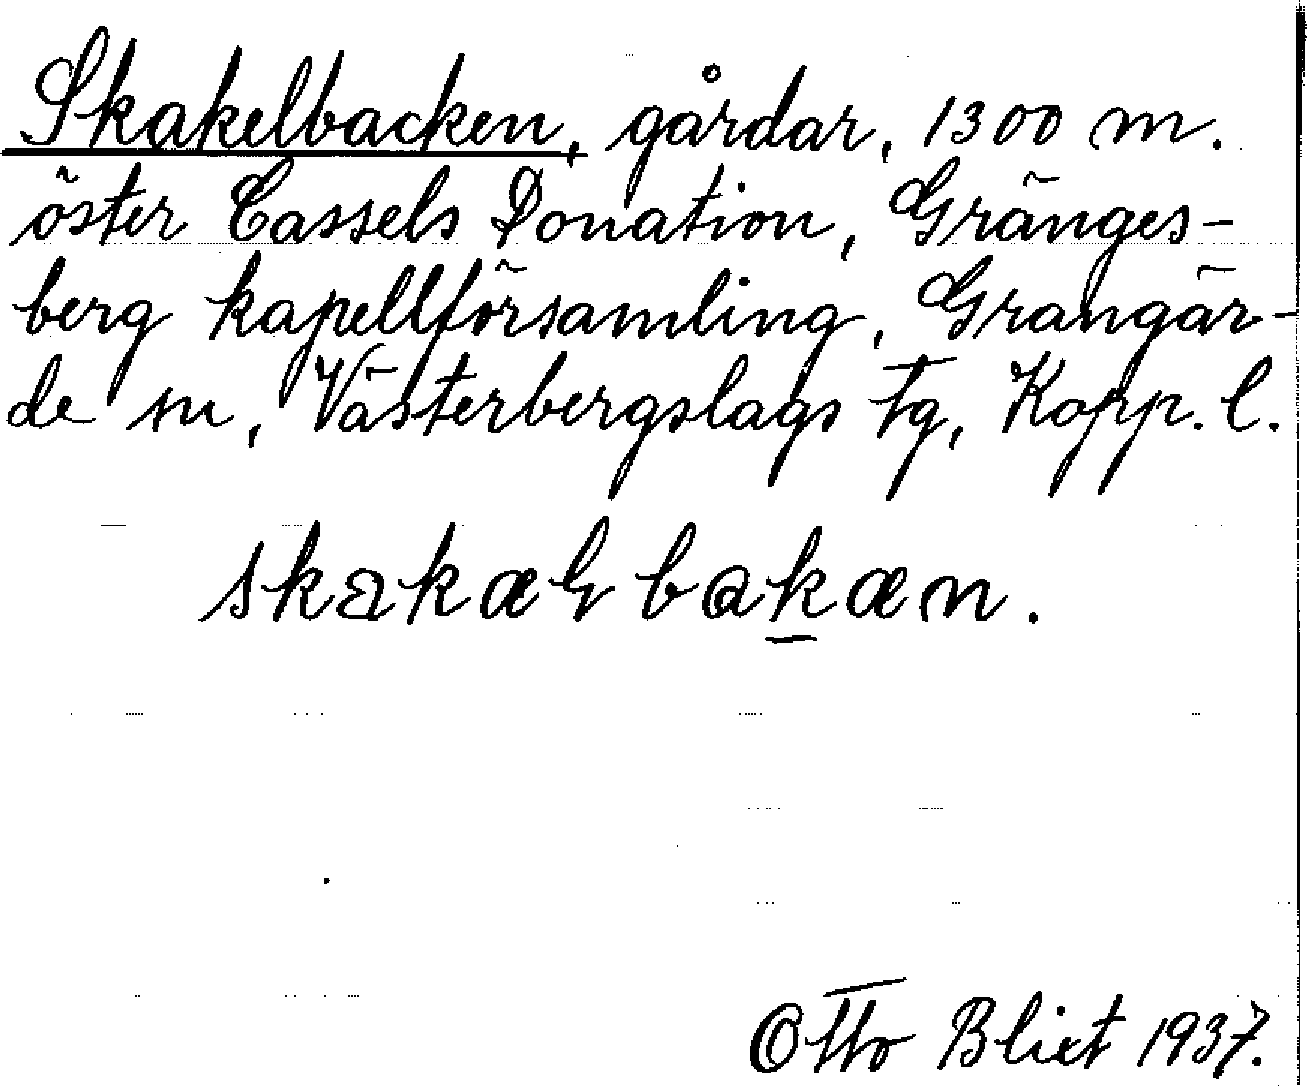 Skakelbacken, gårdar, 1300 m.
öster Cassels Donation, Gränges-
berg kapellförsamling, Grangär-
de sn, Västerbergslags fg, Kopp. l.
skakæɫbakæn.
Otto Blixt 1937.